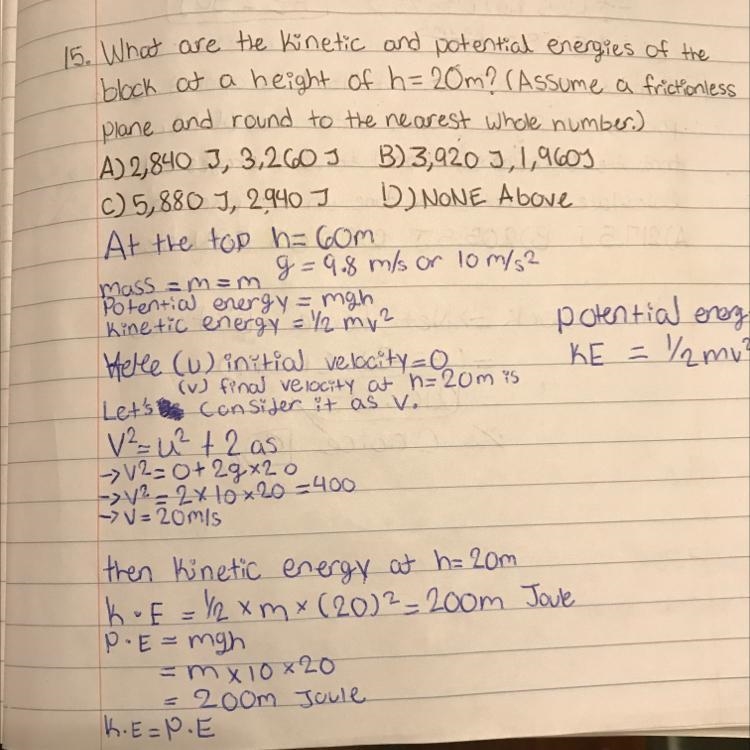 15. What are the kinetic and potential energies of the
block at a height of h=20m? (Assume a frictionless
plane and round to the nearest whole number.)
A) 2,840 J, 3,260 J B) 3,920 J, 1,960J
C) 5,880 J, 2,940 J D) NONE Above
At the top h=60m
g = 9.8 m/s or 10 m/s²
mass = m = m
Potential energy = mgh
Kinetic energy = 1/2 mv²
potential energ
KE = 1/2 mv²
Here (u) initial velocity=0
(v) final velocity at h=20m is
Let's consider it as v.
V²=u² + 2as
→V²=0+2g×20
→V²= 2×10×20 =400
→V=20m/s
then kinetic energy at h=20m
K.E = 1/2 × m × (20)² = 200m Joule
P.E = mgh
= m×10×20
= 200m Joule
K.E = P.E